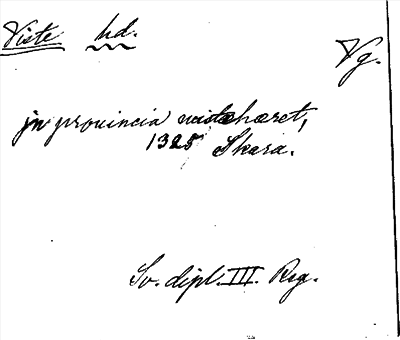 Viste hd.
Vg.
jn prouincia vistahæret,
1325 Skara.
Sv. dipl. III. Reg.